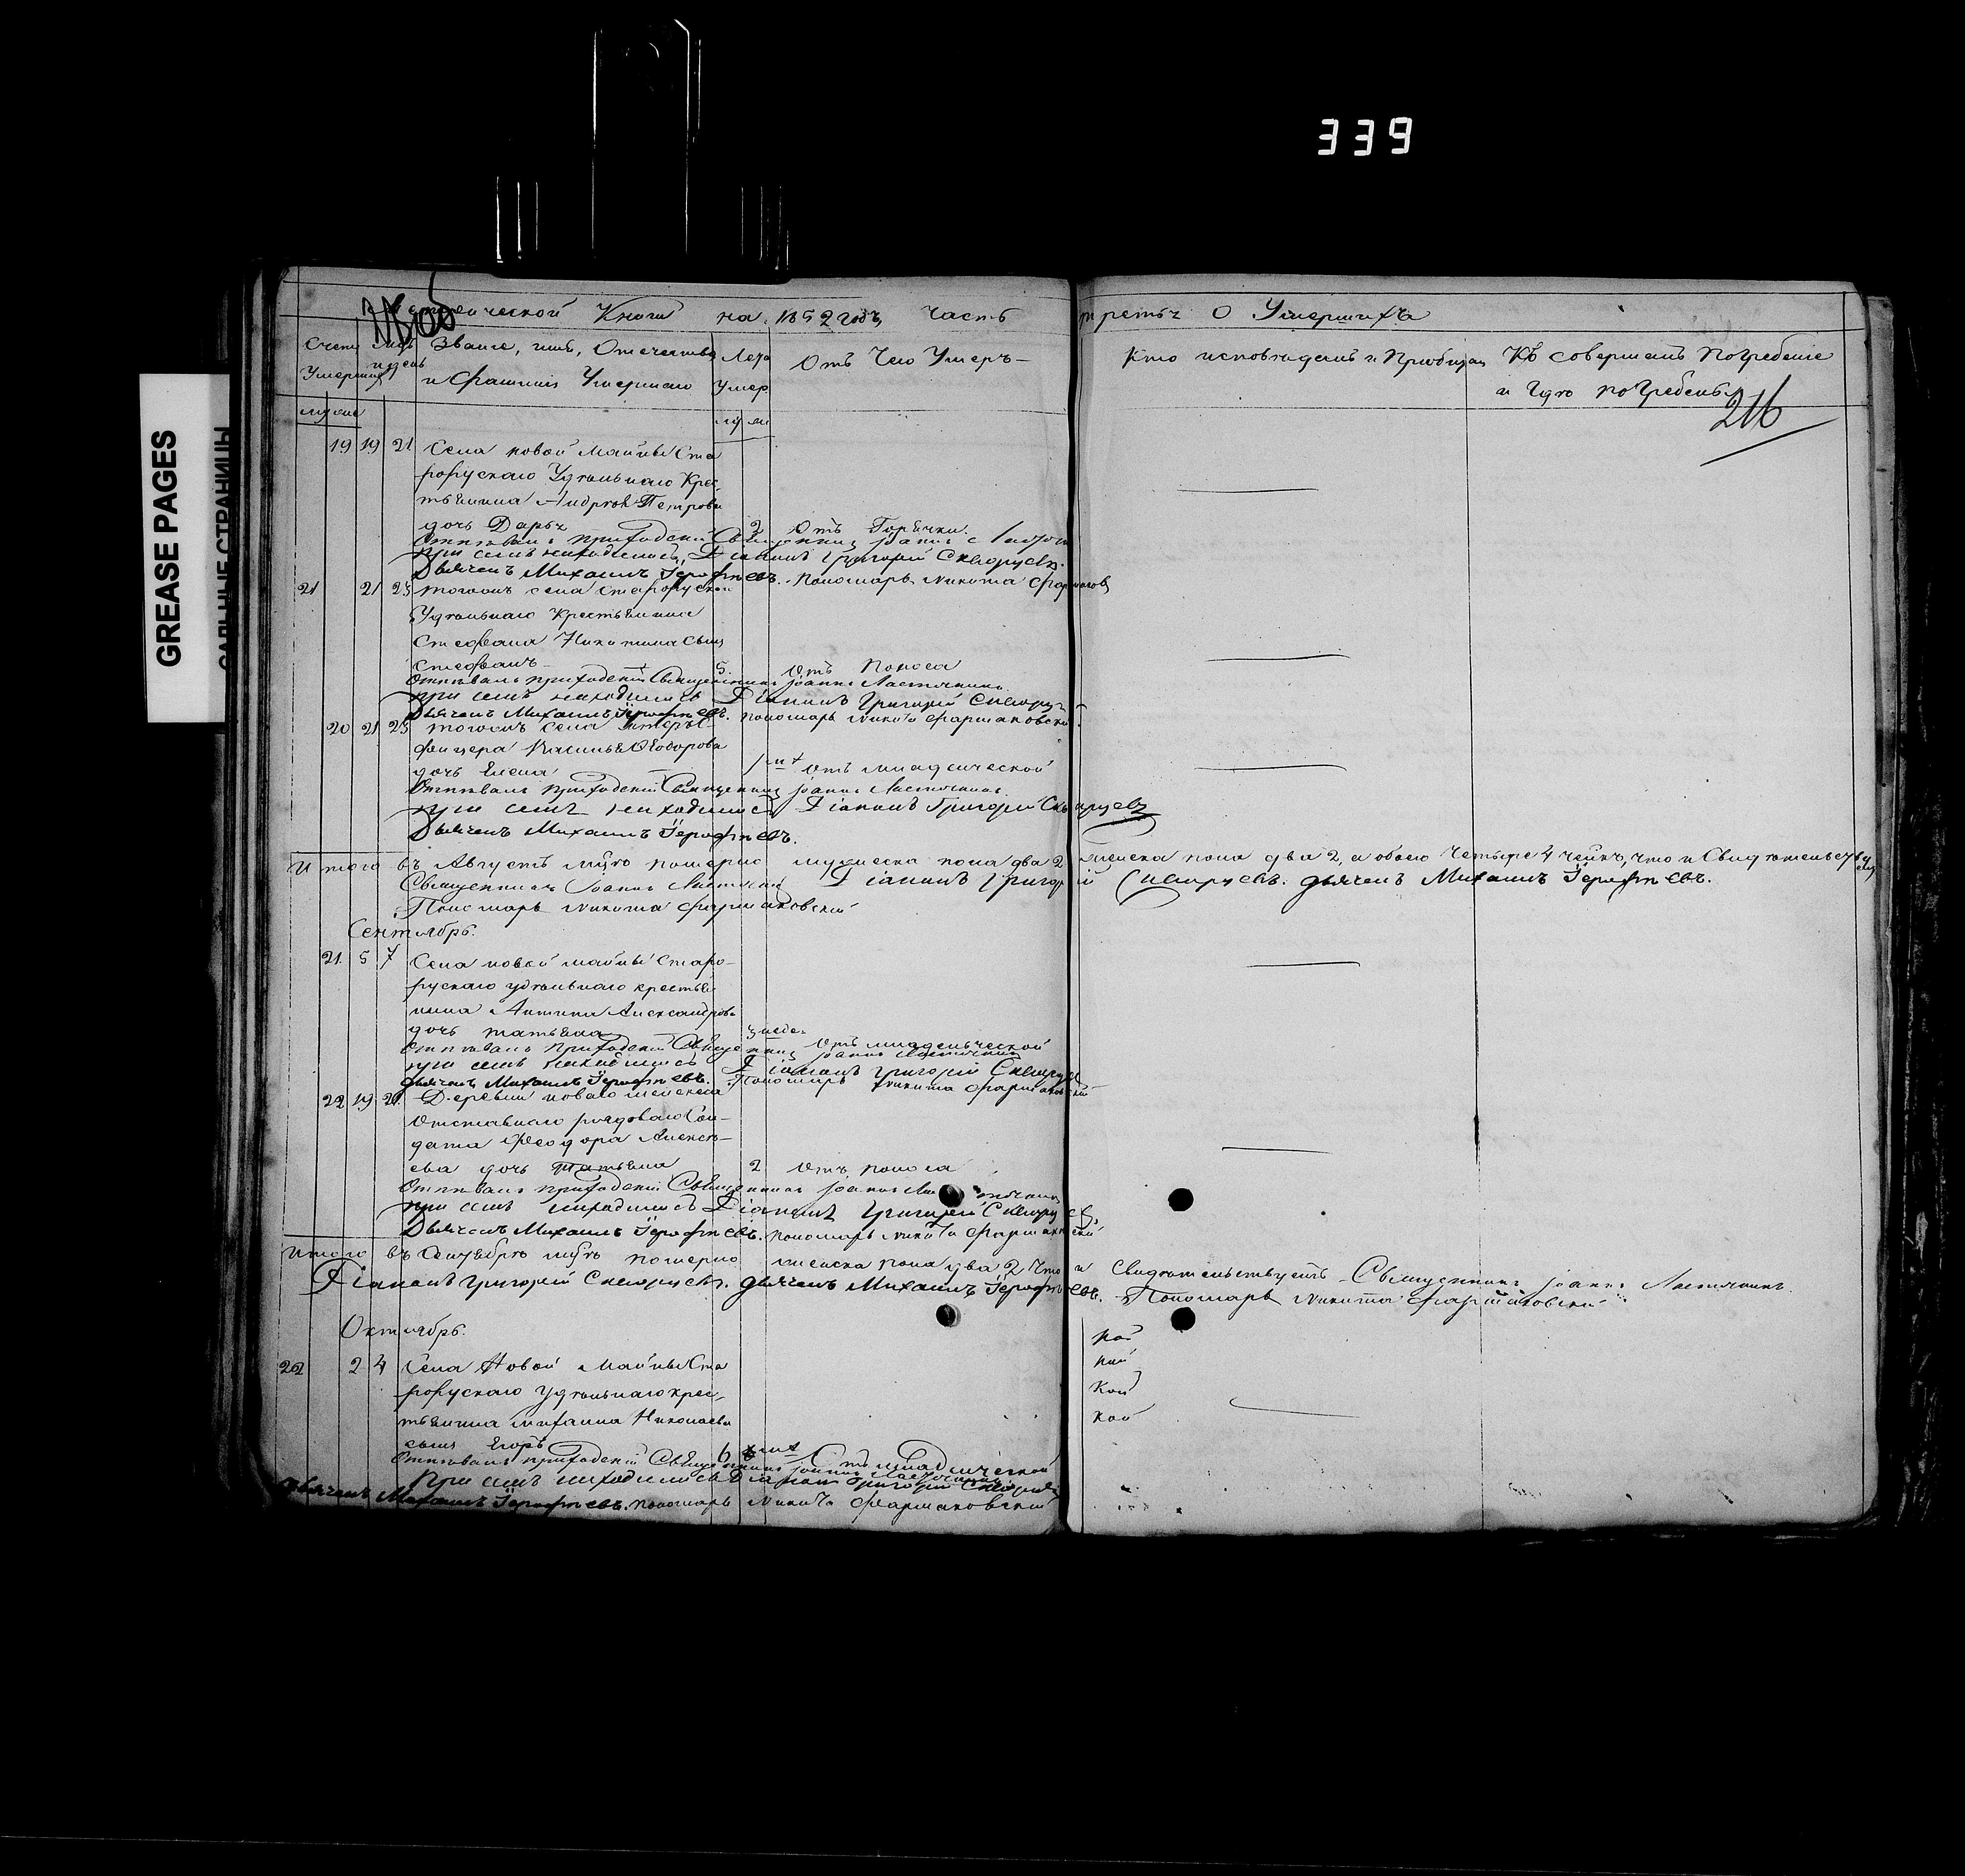 339
GREASE PAGES
САЛЬНЫЕ СТРАНИЦЫ
Метрической Книги на 1852 годъ Часть третья О Умершихъ
Счетъ Умершихъ
Мцъ и день
Званіе, имя, Отечество и Фамилія Умершаго
Лета Умер.
Отъ Чего Умеръ
Кто исповѣдалъ и Пріобщал
Кто совершалъ Погребеніе
и Гдѣ погребены
216
19 19 21 Села новой Майны Ста
рорускаго Удѣльнаго Крес
тьянина Андрея Петрова
дочь Дарья 2 Отъ Горячки.
Отпѣвалъ приходскій Священникъ Іоаннъ Ласточкин
при семъ находились Діаконъ Григорій Скворцевъ.
Дьячекъ Михаилъ Іерофѣевъ. Пономарь Никита Фармаков
21 21 23 тогожъ села старорускаго
Удѣльнаго Крестьянина
Стефана Никитина сынъ
Стефанъ 5. Отъ Поноса
Отпѣвалъ приходскій Священникъ Іоаннъ Ласточкинъ.
при семъ находились Діаконъ Григорій Скворцев
Дьячекъ Михаилъ Іерофѣевъ. пономарь Никита Фармаковскій.
20 21 23 тогожъ села
Василья Феодорова
дочь Елена Отъ младенческой
Отпѣвалъ приходскій Священникъ Іоаннъ Ласточкинъ.
при семъ находился Діаконъ Григорій Скворцевъ
Дьячекъ Михаилъ Іерофѣевъ.
Итого въ Августѣ мцѣ померло мужеска пола два 2 женска пола два 2, а обоего Четыре 4 челвк, что и Свидѣтельству
Священникъ Іоаннъ Ласточкин Діаконъ Григорій Скворцевъ. дьячекъ Михаилъ Іерофѣевъ.
Пономарь Никита Фармаковскій
Сентябрь.
21. 5 7 Села новой майны Старо-
рускаго удѣльнаго крестья
нина Антипа Александрова
дочь татьяна 3 неде. Отъ младенческой
Отпѣвалъ приходскій Священникъ Іоаннъ Ласточкин
при семъ находились Діаконъ Григорій Скворцев
дьячекъ Михаилъ Іерофѣевъ. Пономарь Никита Фармаковскій
22 19 21. Деревни
Отставнаго рядоваго Сол-
дата Феодора Алексѣ-
ева дочь татьяна 2 Отъ поноса
Отпѣвалъ приходскій Священникъ Іоаннъ Ласточкинъ
при семъ находились Діаконъ Григорій Скворцевъ,
Дьячекъ Михаилъ Іерофѣевъ. пономарь Никита Фармаковскій
Итого въ Сентябрѣ мцѣ померло женска пола два 2 Что и Свидѣтельствуетъ Священникъ Іоаннъ Ласточкинъ.
Діаконъ Григорій Скворцевъ. дьячекъ Михаилъ Іерофѣевъ. Пономарь Никита Фармаковскій
Октябрь.
22 2 4 Села Новой Майны Ста
рорускаго удѣльнаго крес-
тьянина михаила Николаева
сынъ Егоръ 6 Отъ младенческой
Отпѣвалъ приходскій Священникъ Іоаннъ Ласточкинъ
при семъ находились Діаконъ Григорій Скворцевъ
Дьячекъ Михаилъ Іерофѣевъ. пономарь Никита Фармаковскій
кой
кой
кой
кой